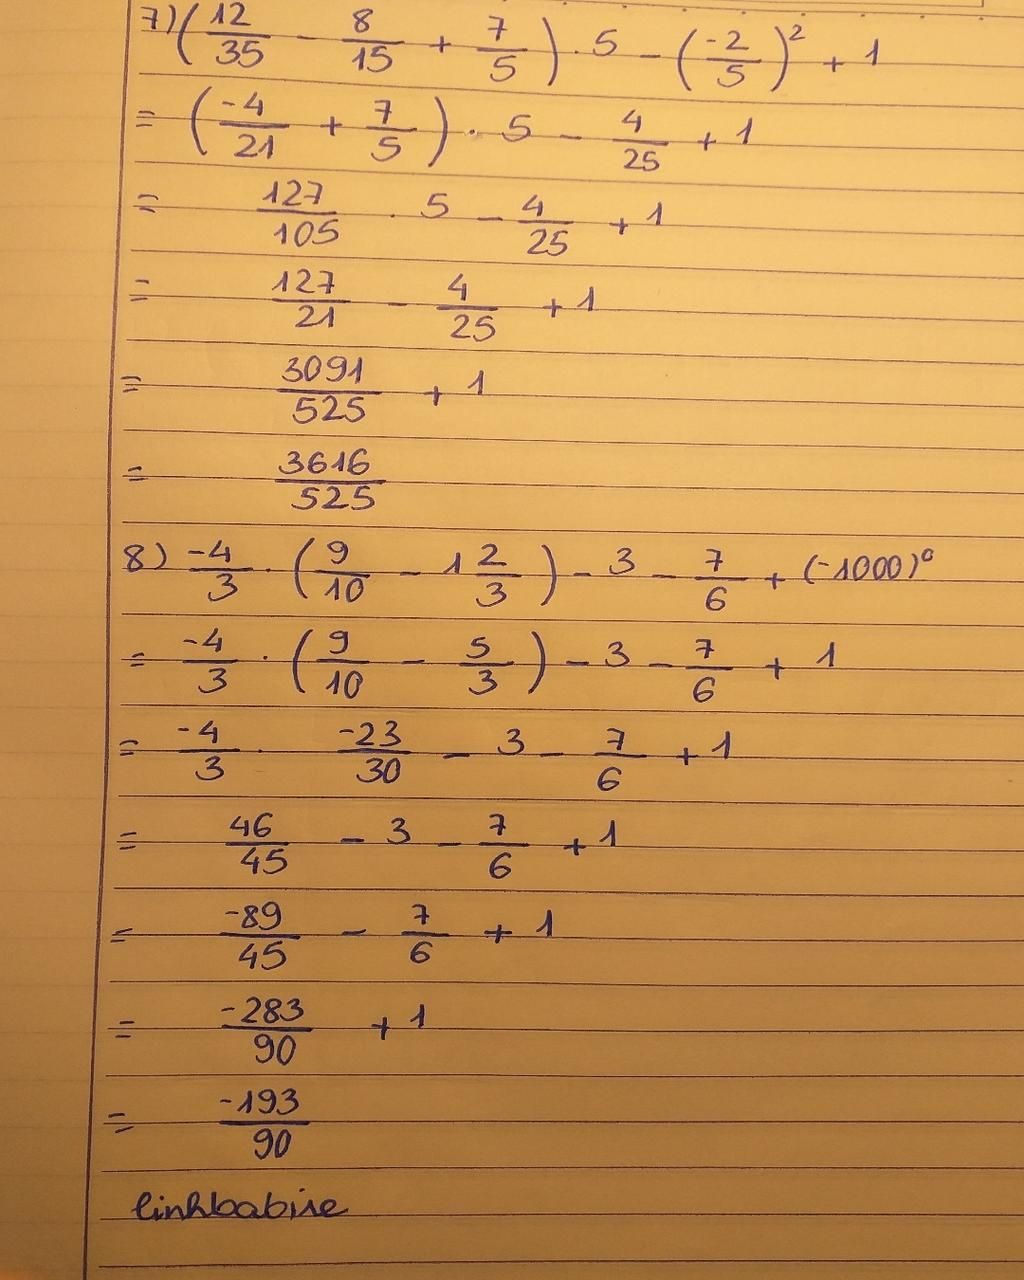 7) (12/35 - 8/15 + 7/5) . 5 - (-2/5)² + 1
= (-4/21 + 7/5) . 5 - 4/25 + 1
= 127/105 . 5 - 4/25 + 1
= 127/21 - 4/25 + 1
= 3091/525 + 1
= 3616/525
8) -4/3 . (9/10 - 1 2/3) - 3 - 7/6 + (-1000)⁰
= -4/3 . (9/10 - 5/3) - 3 - 7/6 + 1
= -4/3 . -23/30 - 3 - 7/6 + 1
= 46/45 - 3 - 7/6 + 1
= -89/45 - 7/6 + 1
= -283/90 + 1
= -193/90
linhbabire